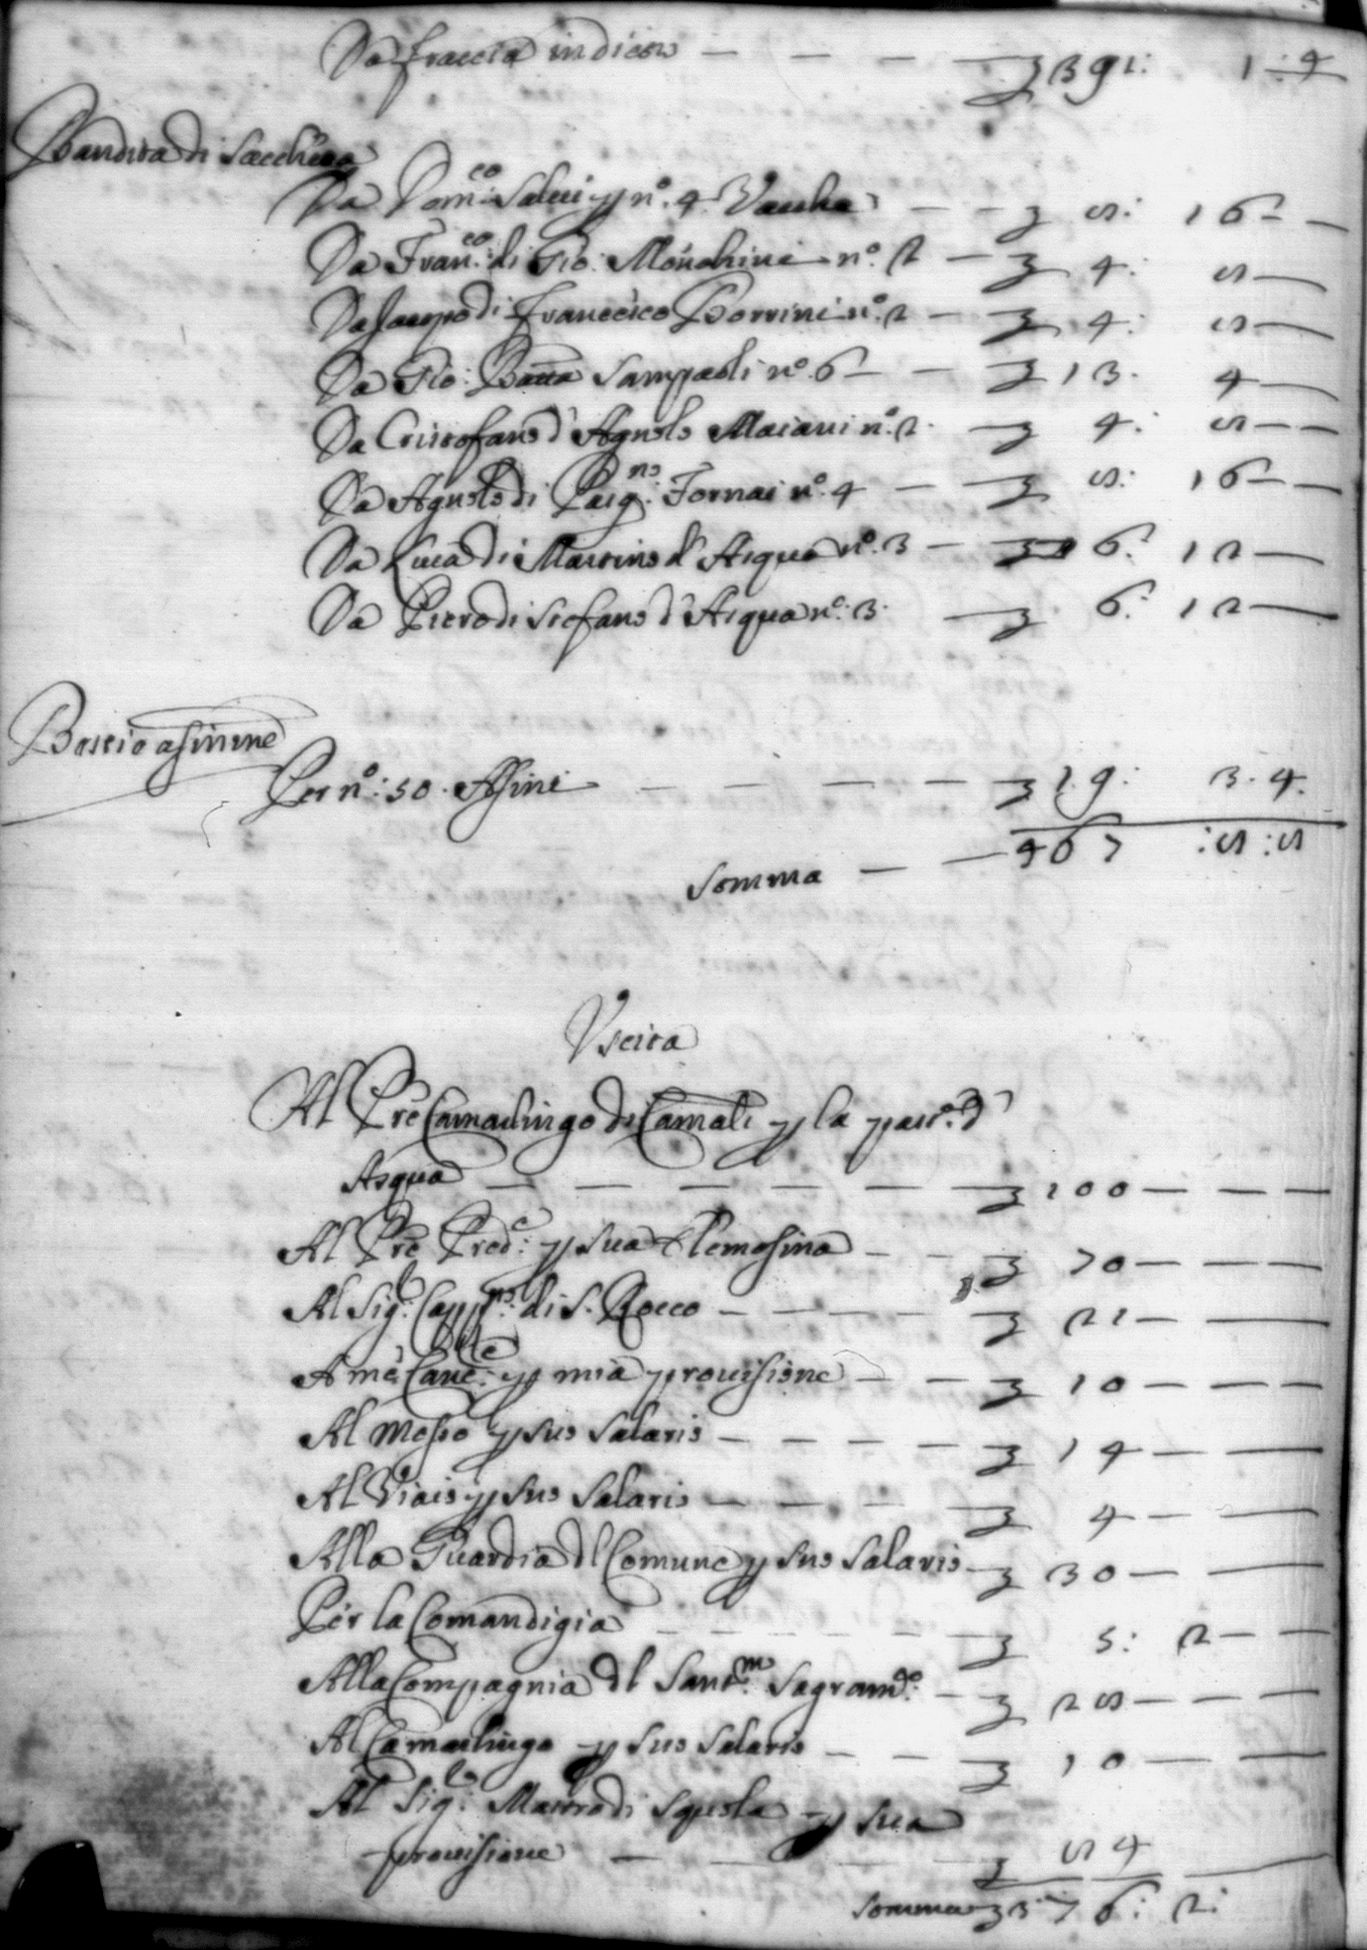 Da faccia indietro — 391: 1:4
Bandita di Secchieta
Da Dom:co Salvi p n.o 4 Vacche — 8: 16
Da Fran:co di Gio: Monchini n.o 2 — 4: 8
Da Jacopo di Francesco Borrini n.o 2 — 4: 8
Da Gio: Batta Sampaoli n.o 6 — 13. 4
Da Cristofano d'Agnolo Maiani n.o 2. — 4: 8
Da Agnolo di Pasq:no Fornai n.o 4 — 8: 16
Da Luca di Martino d'Asqua n.o 3 — 6: 12
Da Piero di Stefano d'Asqua n.o 3. — 6: 12
Bestie asinine
Per n.o: 50. Asini — 19: 3. 4.
Somma — 467 :8:8
Uscita
Al Pre Camarlingo di Camali p la part.e d'
Asqua — 100
Al Pre Pred:e p sua Elemosina — 70
Al Sig:r Capp:no di S. Rocco — 21
A me Canc:e p mia provisione — 10
Al Messo p suo salario — 14
Al Viaio p suo salario — 4
Alla Guardia dl Comune p suo salario — 30
Per la Comandigia — 5: 2
Alla Compagnia dl Sant:mo Sagram:to — 28
Al Camarlingo p suo salario — 10
Al Sig:r Maestro di Squola p sua
provisione — 84
Somma 376: 2: